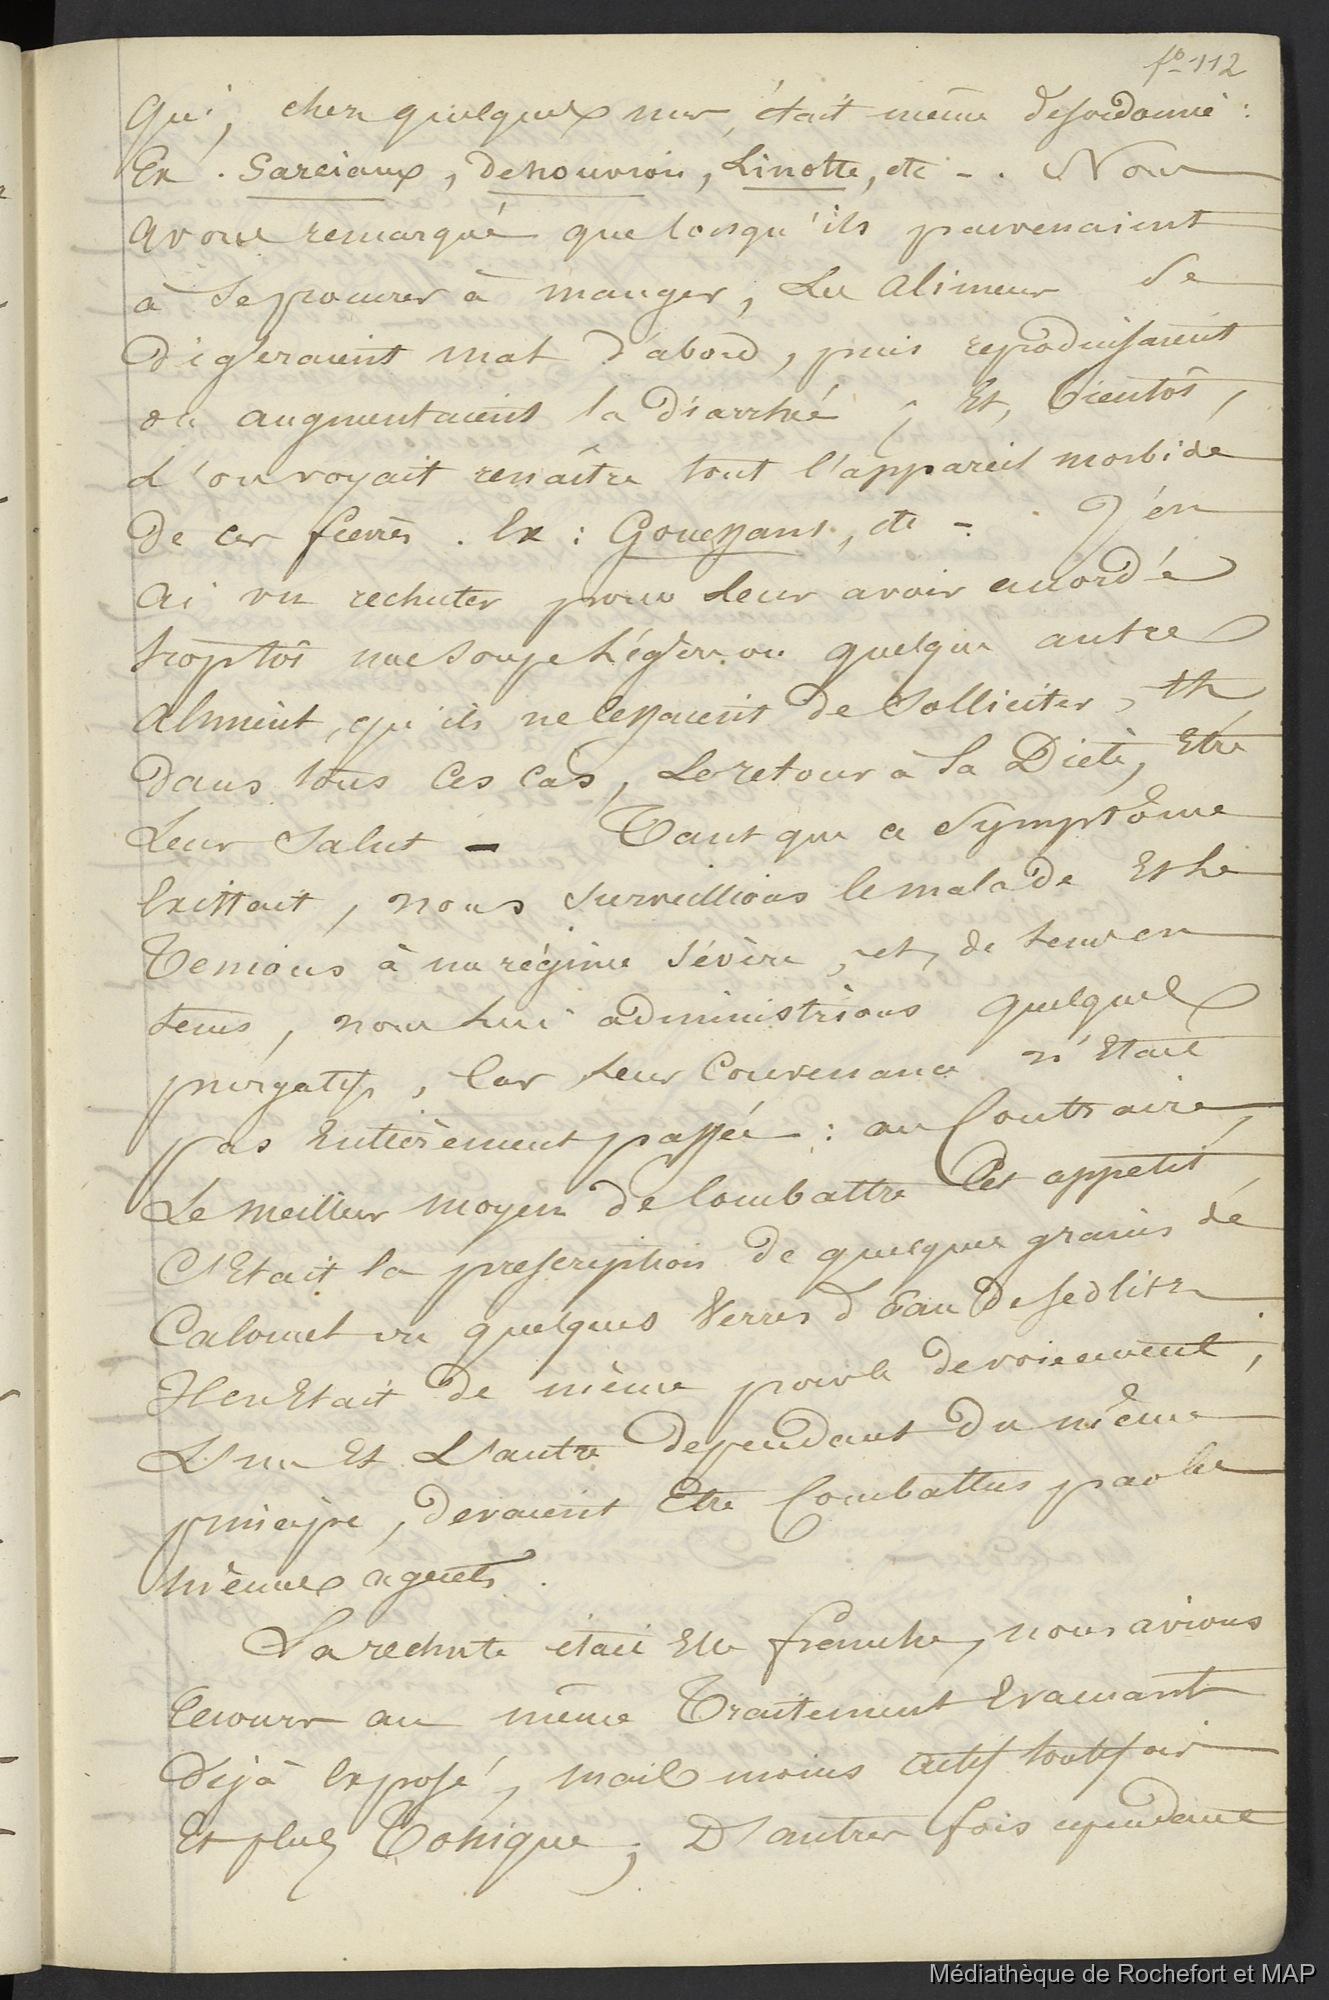 fo 112
qui, chez quelques uns, était même désordonné :
Ex. Garciaux, Dehouvion, Linotte, etc -. Nous
avons remarqué que lorsqu'ils parvenaient
à se procurer à manger, les aliments se
digéraient mal d'abord, puis reproduisaient
ou augmentaient la diarrhée ; Et, bientôt,
l'on voyait renaître tout l'appareil morbide
de ces fièvres. Ex : Gouessant, etc -. J'en
ai vu rechuter pour leur avoir accordé
trop tôt une soupe légère ou quelque autre
aliment, qu'ils ne cessaient de solliciter,
Dans tous ces cas, le retour à la Diète, Etre
leur salut - Tant que ce symptôme
Existait, nous surveillions le malade Et le
Tenions à un régime sévère, et, de tems en
tems, nous lui administrions quelques
purgatifs, Car leur Convenance n'Etait
pas Entièrement passée : au Contraire,
Le meilleur moyen de Combattre Cet appétit,
C'Etait la prescription de quelques grains de
Calomel ou quelques Verres d'Eau de Sedlitz
Il en Etait de même pour le dévoiement,
L'un Et L'autre dépendant du même
principe, devaient Etre Combattus par les
mêmes agents.
La rechute était Elle franche, nous avions
recours au même Traitement Evacuant
déjà Exposé, mais moins actif toutefois
Et plus Tonique ; D'autres fois cependant
Médiathèque de Rochefort et MAP